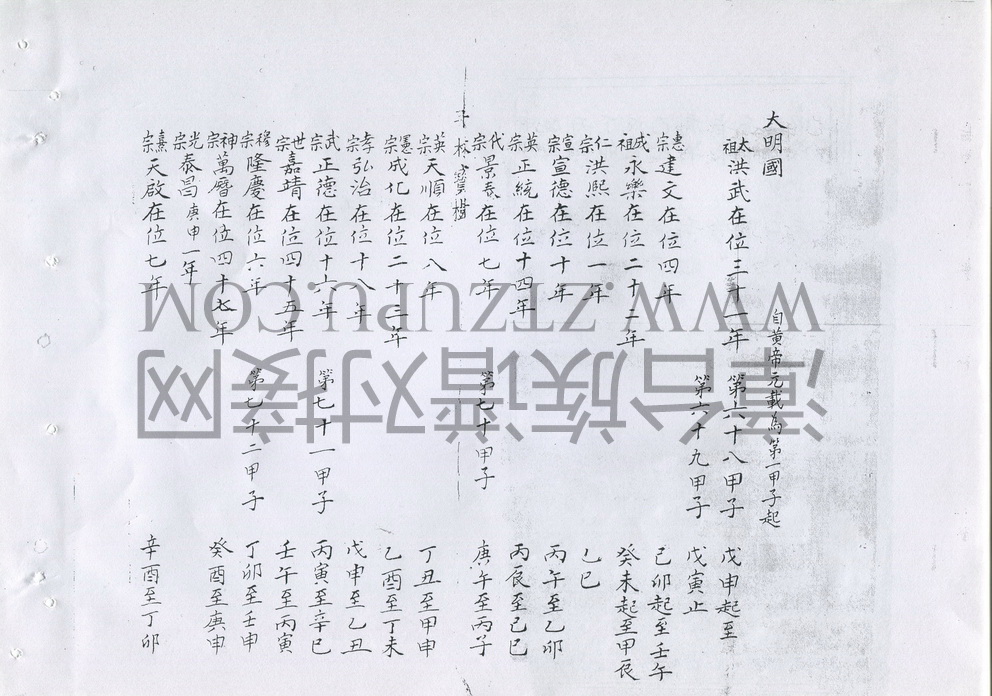 大明國
自黃帝元載為第一甲子起
太祖洪武在位三十一年 第六十八甲子 戊申起至戊寅止
第六十九甲子
惠宗建文在位四年 己卯起至壬午
成祖永樂在位二十二年 癸未起至甲辰
仁宗洪熙在位一年 乙巳
宣宗宣德在位十年 丙午至乙卯
英宗正統在位十四年 丙辰至己巳
代宗景泰在位七年 第七十甲子 庚午至丙子
英宗天順在位八年 丁丑至甲申
憲宗成化在位二十三年 乙酉至丁未
孝宗弘治在位十八年 戊申至乙丑
武宗正德在位十六年 第七十一甲子 丙寅至辛巳
世宗嘉靖在位四十五年 壬午至丙寅
穆宗隆慶在位六年 第七十二甲子 丁卯至壬申
神宗萬曆在位四十七年 癸酉至庚申
光宗泰昌庚申一年
熹宗天啟在位七年 辛酉至丁卯
WWW.ZTZUPU.COM
漳台族谱对接网